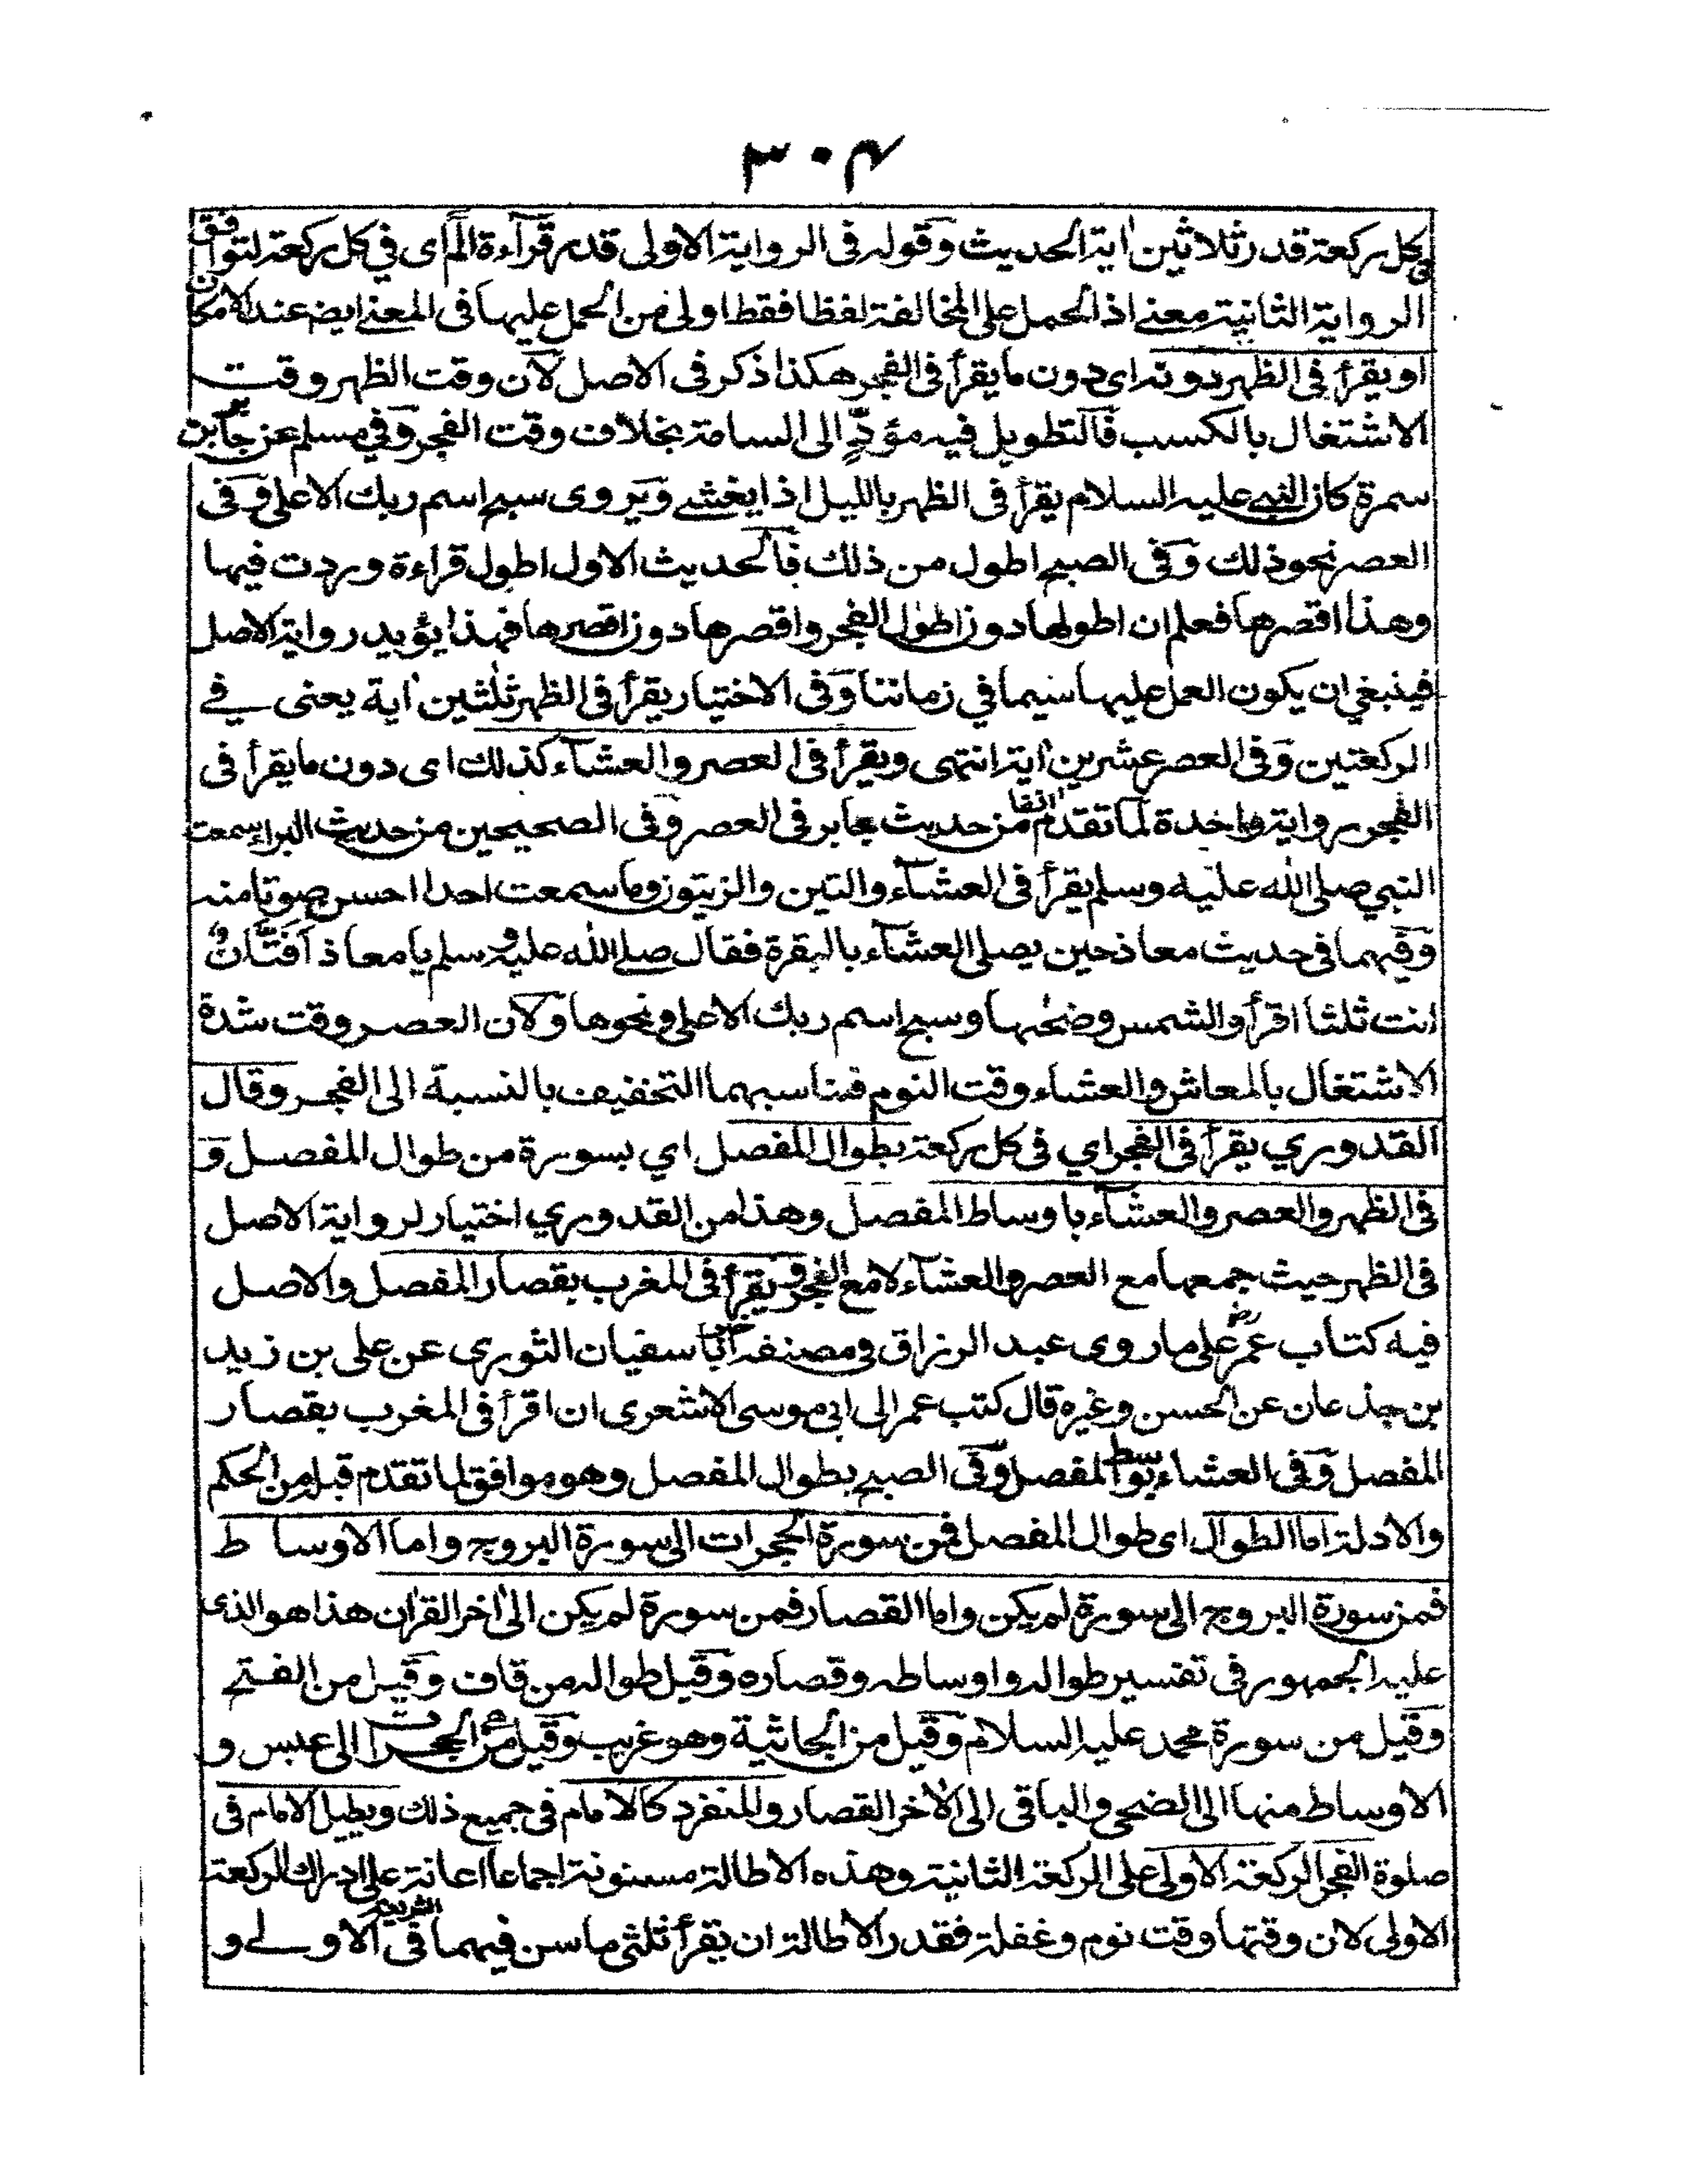 ٣٠٤
فى كل ركعة قدر ثلاثين اٰية الحديث وقوله فى الرواية الاولى قدر قرآءة الٓمّ اى في كل ركعة لتوافق
الرواية الثانية معنے اذ الحمل على المخالفة لفظا فقط اولى من الحمل عليها فى المعنے ايضا عند الامكان
او يقرأ فى الظهر دونه اى دون ما يقرأ فى الفجر هكذا ذكر فى الاصل لان وقت الظهر وقت
الاشتغال بالكسب فالتطويل فيه مؤدٍّ الى السامة بخلاف وقت الفجر وفي مسلم عن جابر بن
سمرة كان النبي عليه السلام يقرأ فى الظهر بالليل اذا يغشے ويروى سبح اسم ربك الاعلى وفى
العصر نحو ذلك وفى الصبح اطول من ذلك فالحديث الاول اطول قراءة وردت فيها
وهذا اقصرها فعلم ان اطولها دون اطول الفجر واقصرها دون اقصرها فهذا يؤيد رواية الاصل
فينبغي ان يكون العمل عليها سيما في زماننا وفى الاختيار يقرأ فى الظهر ثلٰثين اٰية يعنى في
الركعتين وفى العصر عشرين اٰية انتهى ويقرأ فى العصر والعشآء كذلك اى دون ما يقرأ فى
الفجر رواية واحدة لما تقدم اٰنفا من حديث جابر فى العصر وفى الصحيحين من حديث البراء سمعت
النبي صلى الله عليه وسلم يقرأ فى العشآء والتين والزيتون وما سمعت احدا احسن صوتا منه
وفيهما فى حديث معاذ حين يصلى العشآء بالبقرة فقال صلے الله عليه وسلم يا معاذ اَفَتَّانٌ
انت ثلثا اقرأ والشمس وضحٰها وسبح اسم ربك الاعلى ونحوها ولان العصر وقت شدة
الاشتغال بالمعاش والعشاء وقت النوم فناسبهما التخفيف بالنسبة الى الفجر وقال
القدوري يقرأ فى الفجر اي فى كل ركعة بطوال المفصل اي بسورة من طوال المفصل و
فى الظهر والعصر والعشآء باوساط المفصل وهذا من القدوري اختيار لرواية الاصل
فى الظهر حيث جمعها مع العصر والعشآء لا مع الفجر ويقرأ فى المغرب بقصار المفصل والاصل
فيه كتاب عمر رض على ما روى عبد الرزاق فى مصنفه اخبرنا سفيان الثورى عن على بن زيد
بن جذعان عن الحسن وغيره قال كتب عمر الى ابى موسى الاشعرى ان اقرأ فى المغرب بقصار
المفصل وفى العشاء بوسط المفصل وفى الصبح بطوال المفصل وهو موافق لما تقدم قبل من الحكم
والادلة اما الطوال اى طوال المفصل فمن سورة الحجرات الى سورة البروج واما الاوساط
فمن سورة البروج الى سورة لم يكن واما القصار فمن سورة لم يكن الى اٰخر القراٰن هذا هو الذى
عليه الجمهور فى تفسير طواله واوساطه وقصاره وقيل طواله من قاف وقيل من الفتح
وقيل من سورة محمد عليه السلام وقيل من الجاثية وهو غريب وقيل من الحجرات الى عبس و
الاوساط منها الى الضحى والباقى الى الاٰخر القصار والمنفرد كالامام فى جميع ذلك ويطيل الامام فى
صلوة الفجر الركعة الاولى على الركعة الثانية وهذه الاطالة مسنونة اجماعا اعانة على ادراك الركعة
الاولى لان وقتها وقت نوم وغفلة فقدر الاطالة ان يقرأ ثلثى ما سن فيهما فى الاولے و